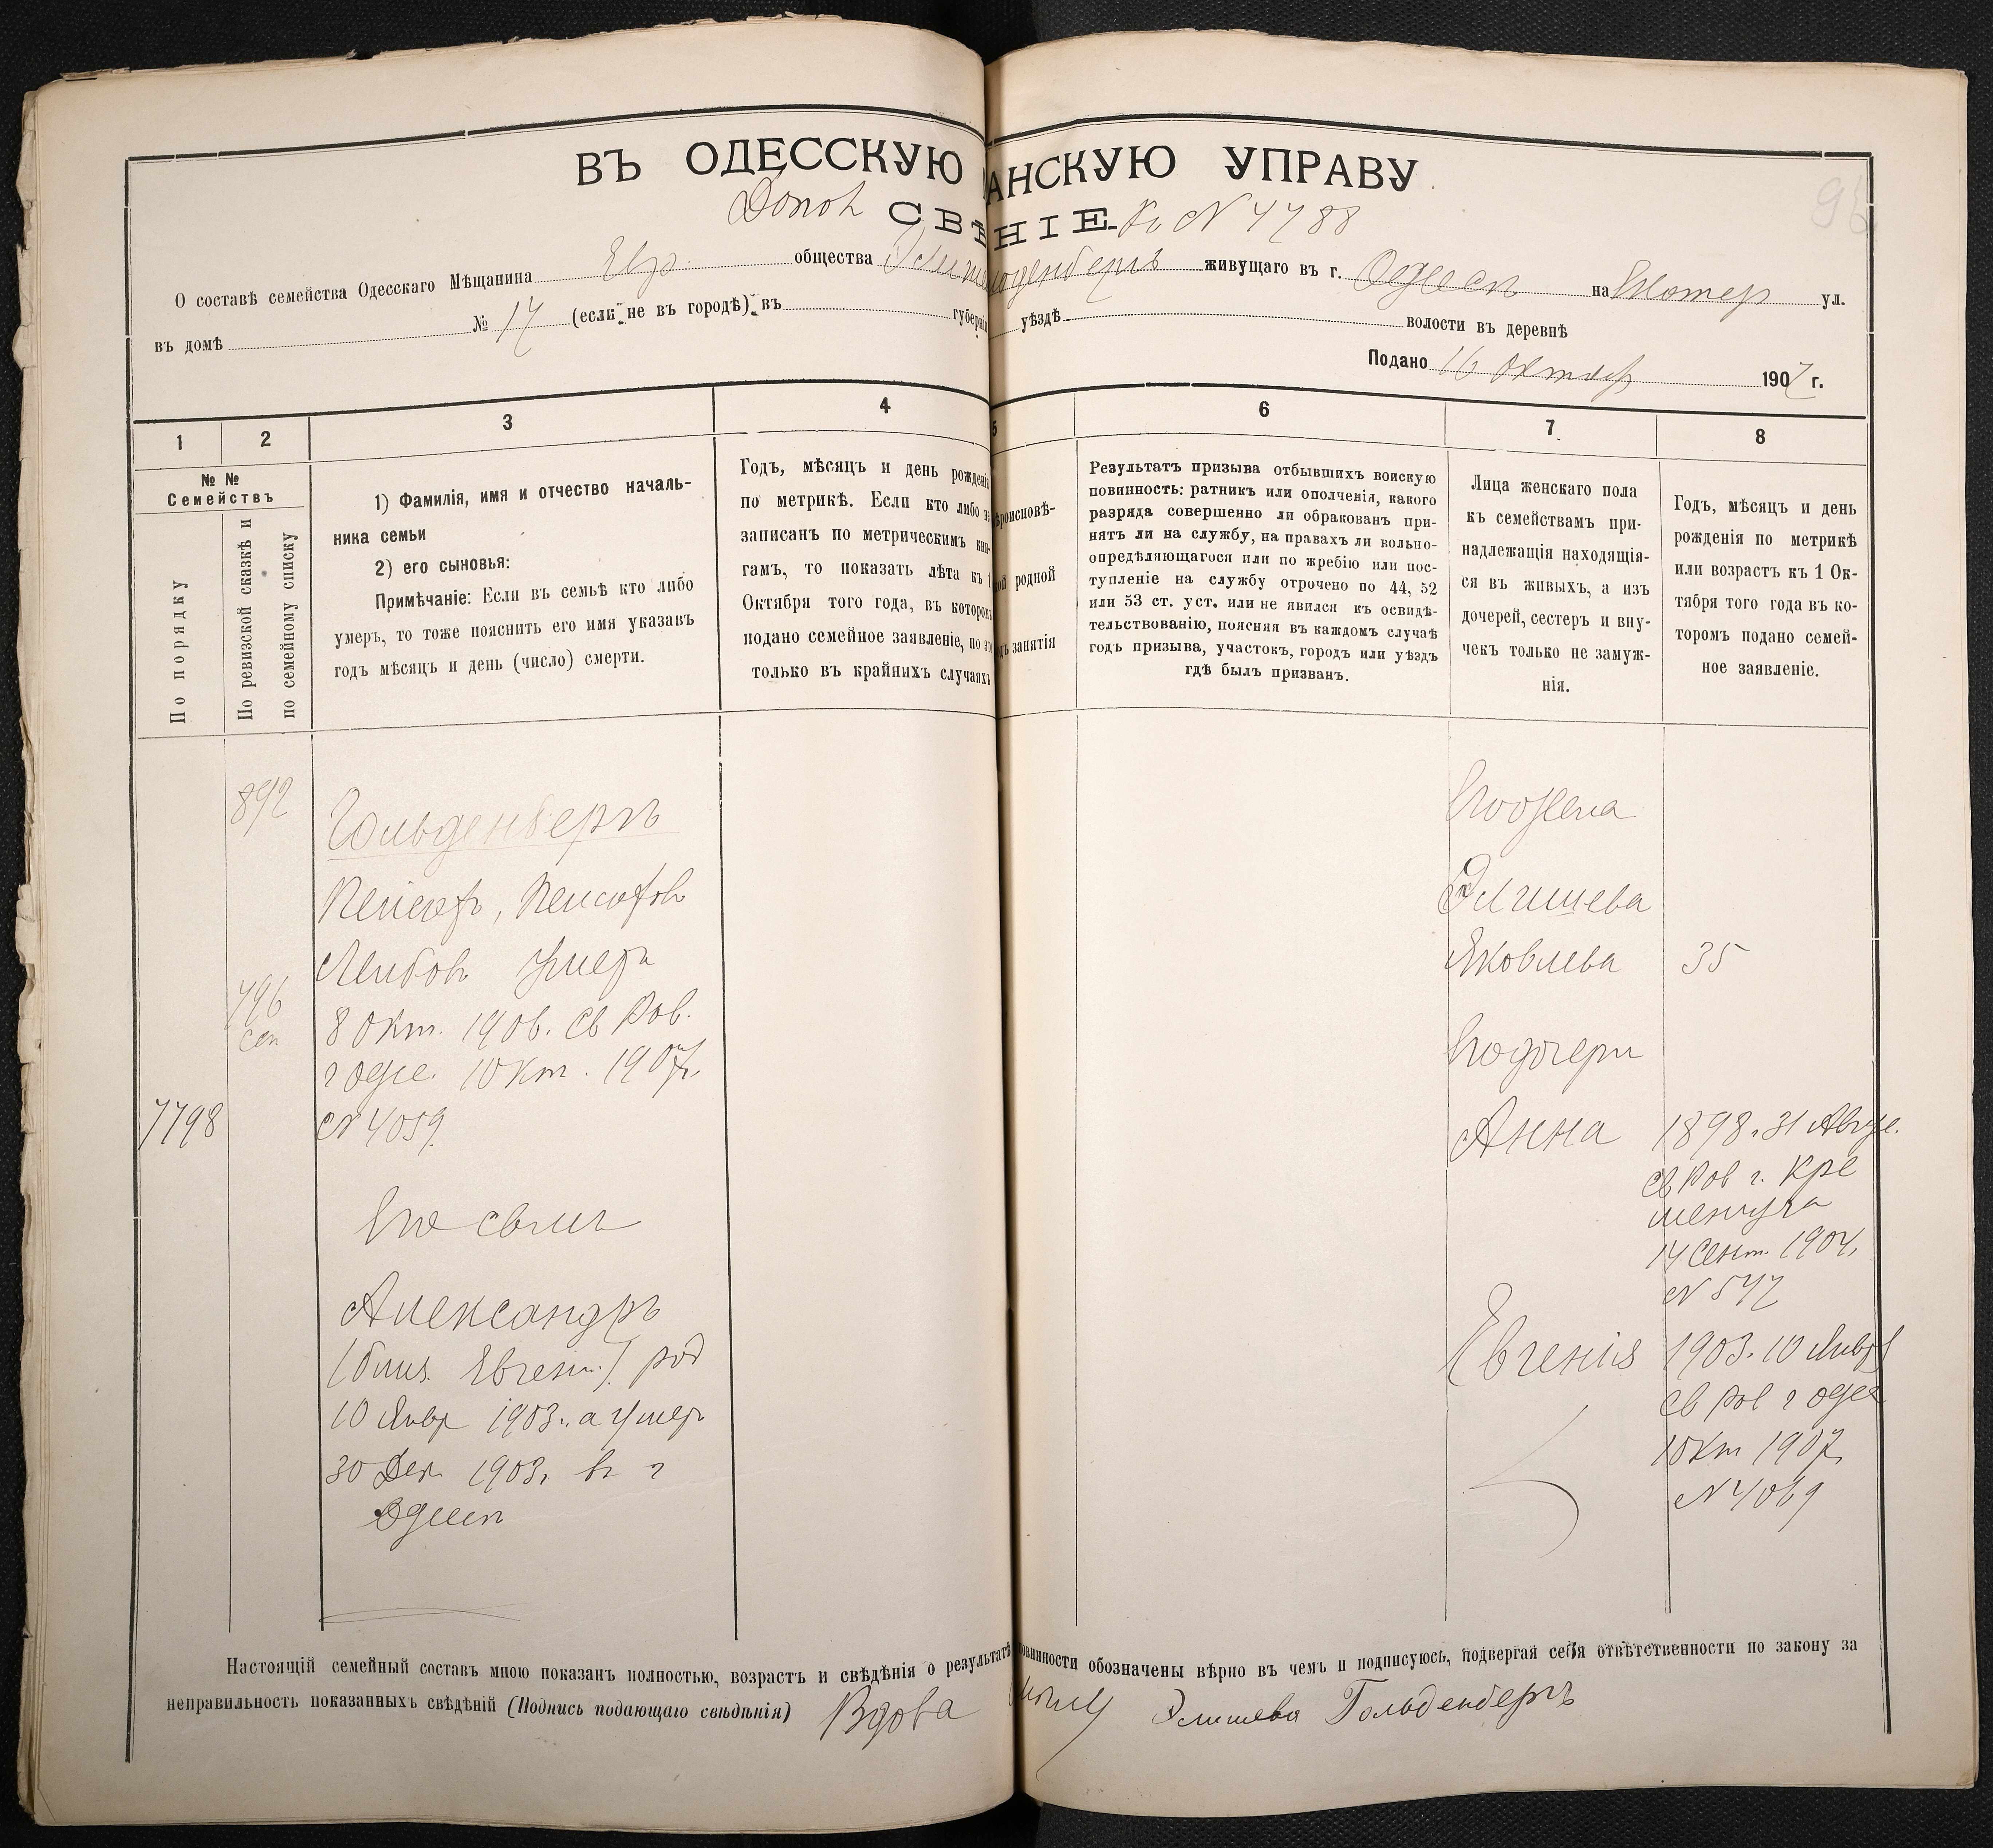 ВЪ ОДЕССКУЮ АНСКУЮ УПРАВУ
Допол СВѢ НІЕ. Къ № 4788
О составѣ семейства Одесскаго Мѣщанина Евр. общества живущаго въ г. Одессѣ на ул.
въ домѣ № 17 (если не въ городѣ) въ губерніи уѣздѣ волости въ деревнѣ
Подано 16 Октяб 1907 г.
1 2 3 4 5 6 7 8
№ №
Семействъ
По порядку
По ревизской сказкѣ и
по семейному списку
1) Фамилія, имя и отчество началь-
ника семьи
2) его сыновья:
Примѣчаніе: Если въ семьѣ кто либо
умеръ, то тоже пояснить его имя указавъ
годъ мѣсяцъ и день (число) смерти.
Годъ, мѣсяцъ и день рожденія
по метрикѣ. Если кто либо не
записанъ по метрическимъ кни-
гамъ, то показать лѣта къ 1
Октября того года, въ которомъ
подано семейное заявленіе, но это
только въ крайнихъ случаяхъ
ѣроисповѣ-
кой родной
дъ занятія
Результатъ призыва отбывшихъ воискую
повинность: ратникъ или ополченія, какого
разряда совершенно ли обракованъ при-
нятъ ли на службу, на правахъ ли вольно-
опредѣляющагося или по жребію или пос-
тупленіе на службу отрочено по 44, 52
или 53 ст. уст. или не явился къ освидѣ-
тельствованію, поясняя въ каждомъ случаѣ
годъ призыва, участокъ, городъ или уѣздъ
гдѣ былъ призванъ.
Лица женскаго пола
къ семействамъ при-
надлежащія находящія-
ся въ живыхъ, а изъ
дочерей, сестеръ и вну-
чекъ только не замуж-
нія.
Годъ, мѣсяцъ и день
рожденія по метрикѣ
или возрастъ къ 1 Ок-
тября того года въ ко-
торомъ подано семей-
ное заявленіе.
892
Гольденбергъ
Пейсах, Пейсахов
Лейбов Умеръ
796
сем
8 Окт. 1906. Св Рав.
г Одес. 1 Окт. 1907г.
7798
№ 4059
Его сынъ
Александръ
(близ. Евген.) род
10 Янвр 1903г. а умер
30 Дек 1903г. въ г
Одессѣ
Его жена
Элишева
Яковлева 35
Его дочери
Анна 1898. 31 Авгус.
Св Рав г. Кре
менчуга
14 Сент. 1904,
№ 547
Евгенія 1903. 10 Январ
Св Рав г Одес
1 Окт 1907,
№ 4069
Настоящій семейный составъ мною показанъ полностью, возрастъ и свѣдѣнія о результатѣ повинности обозначены вѣрно въ чемъ и подписуюсь, подвергая себя отвѣтственности по закону за
неправильность показанныхъ свѣдѣній (Подпись подающаго свѣдѣнія) Вдова Элишева Гольденбергъ